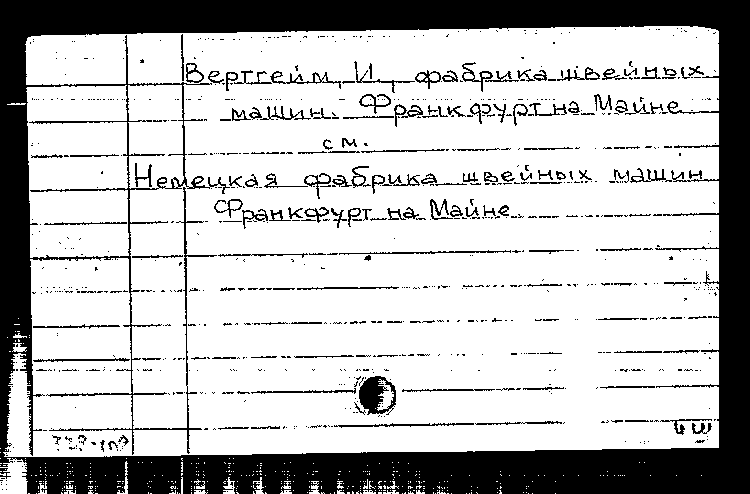 Вертгейм, И., фабрика швейных
машин. Франкфурт на Майне
см.
Немецкая фабрика швейных машин
Франкфурт на Майне